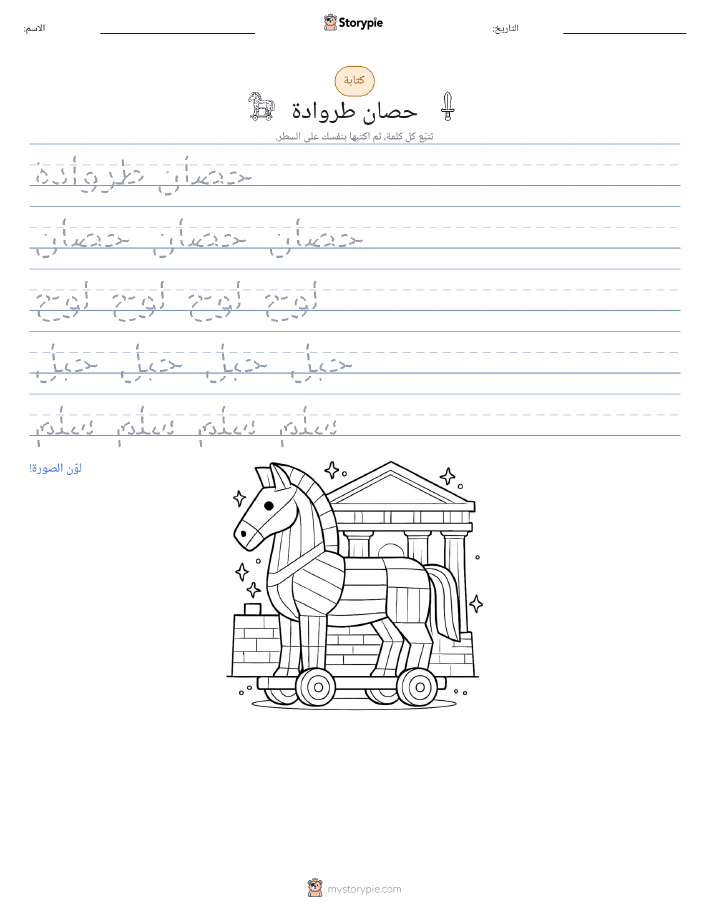 Storypie
الاسم:
التاريخ:
كتابة
حصان طروادة
تتبّع كل كلمة، ثم اكتبها بنفسك على السطر.
حصان طروادة
حصان حصان حصان
لوح لوح لوح لوح
حبل حبل حبل حبل
سلم سلم سلم سلم
لوّن الصورة!
mystorypie.com